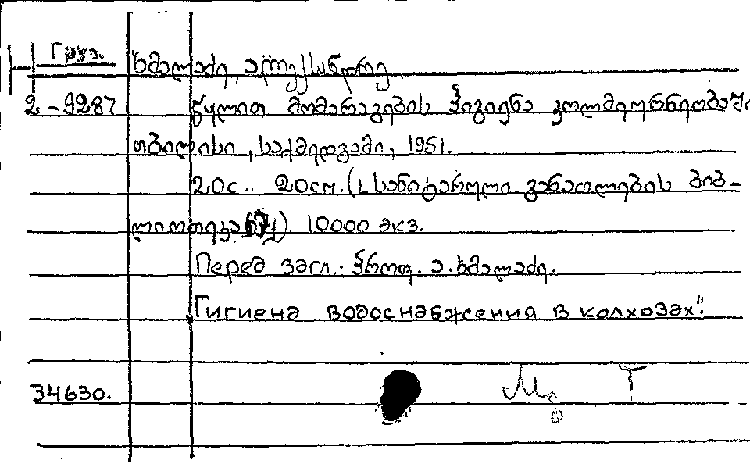 Груз.
ხმალაძე, ალექსანდრე
2-9287 წყლით მომარაგების ჰიგიენა კოლმეურნეობაში
თბილისი, საქმედგამი, 1951.
20с.. 20см. (სანიტარული განათლების ბიბ-
ლიოთეკა) 10000 экз.
Перед загл. პროფ. ა. ხმალაძე.
Гигиена водоснабжения в колхозах".
34630.